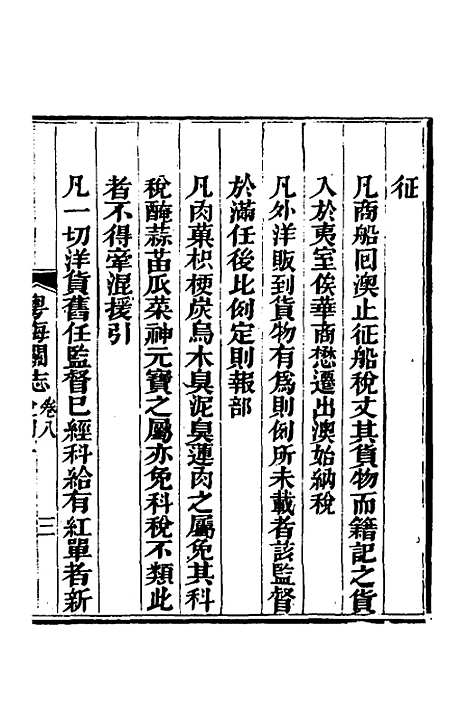 征
凡商船囘澳止征船稅丈其貨物而籍記之貨
入於夷室俟華商懋遷出澳始納稅
凡外洋販到貨物有爲則例所未載者該監督
於滿任後比例定則報部
凡肉菓枳梗炭烏木臭泥臭蓮肉之屬免其科
稅醃蒜苗瓜菜神元寶之屬亦免科稅不類此
者不得牽混援引
凡一切洋貨舊任監督已經科給有紅單者新
粵海關志
卷八
三